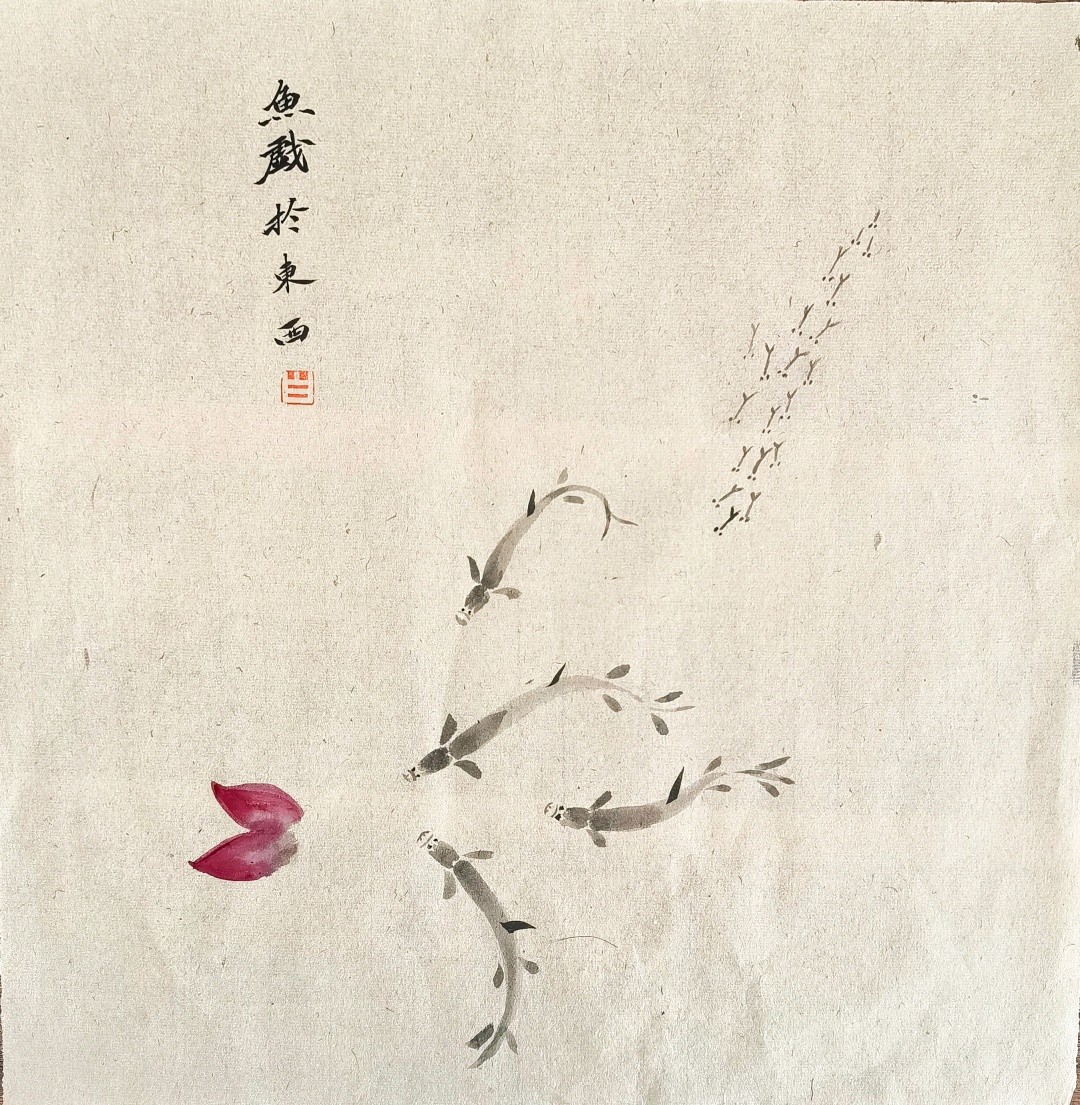 魚戲於東西